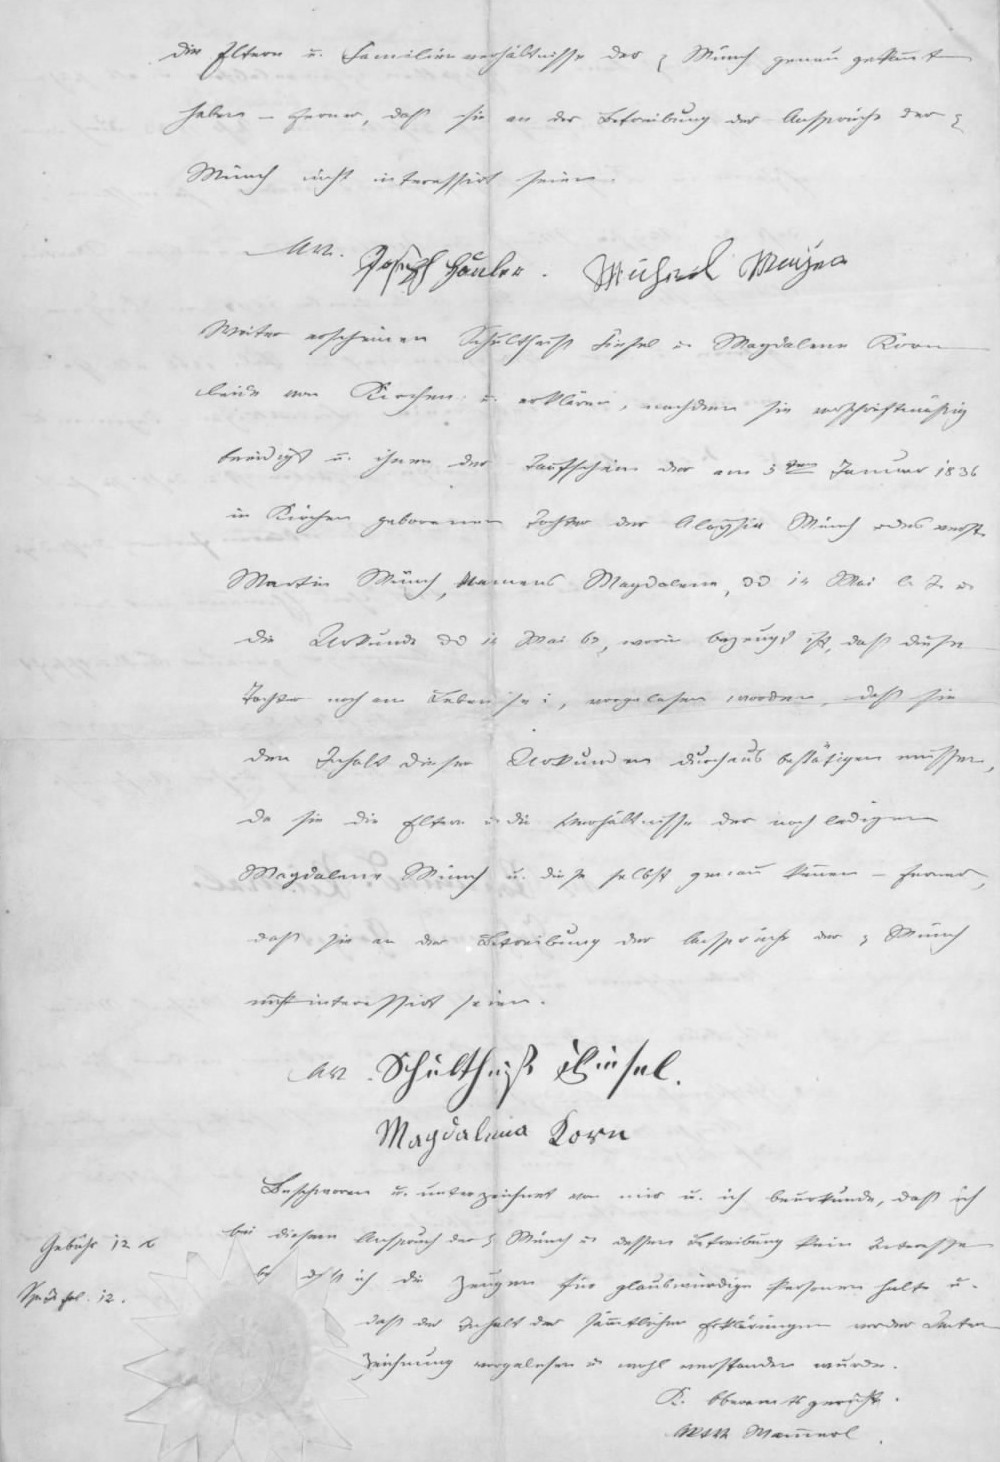 die Eltern u. Familienverhältnisse der Münch genau gekannt
haben – ferner, daß sie an der Betreibung der Ansprüche der
Münch nicht interessirt seien.
Joseph Michael
Weiter erscheinen Schultheiß u. Magdalena Korn
beide von Kirchen u. erklären, nachdem sie vorschriftmäßig
beeidigt u. ihnen der Taufschein der am 5ten Januar 1836
in Kirchen geborenen Tochter der Aloysia Münch u. des verst.
Martin Münch, Namens Magdalena, dd 14 Mai l. J. u.
die Urkunde dd 14 Mai, worin bezeugt ist, daß diese
Tochter noch am Leben sei, vorgelesen worden, daß sie
den Inhalt dieser Urkunden durchaus bestätigen müssen,
da sie die Eltern u. die Verhältnisse der noch ledigen
Magdalena Münch u. diese selbst genau kennen – ferner,
daß sie an der Betreibung der Ansprüche der Münch
nicht interessirt seien.
Schultheiß
Magdalena Korn
Beschworen u. unterzeichnet vor mir u. ich beurkunde, daß ich
bei diesem Anspruch der Münch u. dessen Betreibung kein Interesse
Gebühr 12 x
daß ich die Zeugen für glaubwürdige Personen halte u.
12.
daß der Inhalt der sämmtlichen Erklärungen vor der Unter-
zeichnung vorgelesen u. wohl verstanden wurde.
K. Oberamtsgericht.